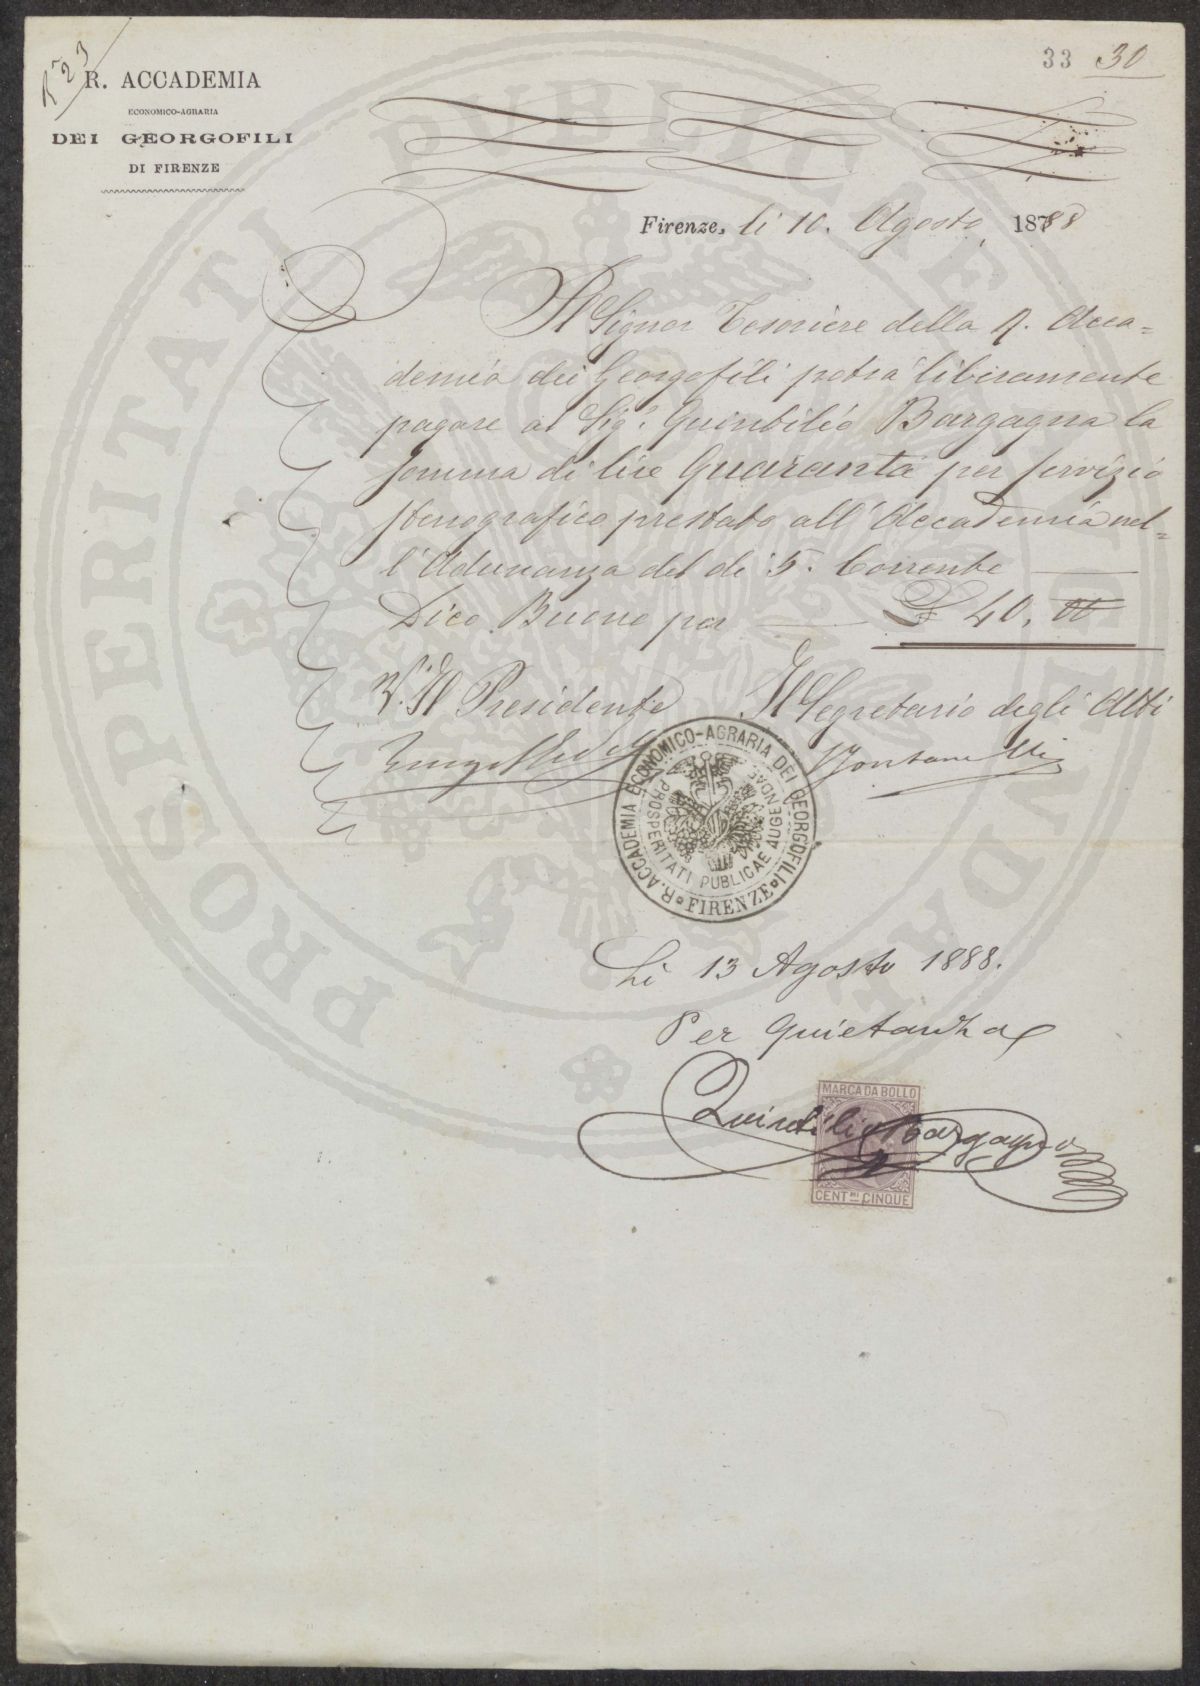 N° 23
33 30
R. ACCADEMIA
ECONOMICO-AGRARIA
DEI GEORGOFILI
DI FIRENZE
Firenze, li 10. Agosto 1888
Il Signor Tesoriere della R. Acca=
demia dei Georgofili potrà liberamente
pagare al Sig.r Quintilio Bargagna la
somma di lire Quaranta per servizio
stenografico prestato all'Accademia nel=
l'Adunanza del dì 5. Corrente
Dico Buono per £ 40. 00
V. Il Presidente Il Segretario degli Atti
Fontanelli
R. ACCADEMIA ECONOMICO-AGRARIA DEI GEORGOFILI
FIRENZE
PROSPERITATI PUBLICAE AUGENDAE
Li 13 Agosto 1888.
Per Quietanza
MARCA DA BOLLO
Quintilio Bargagna
CENT.MI CINQUE
PROSPERITATI PUBLICAE AVGENDAE